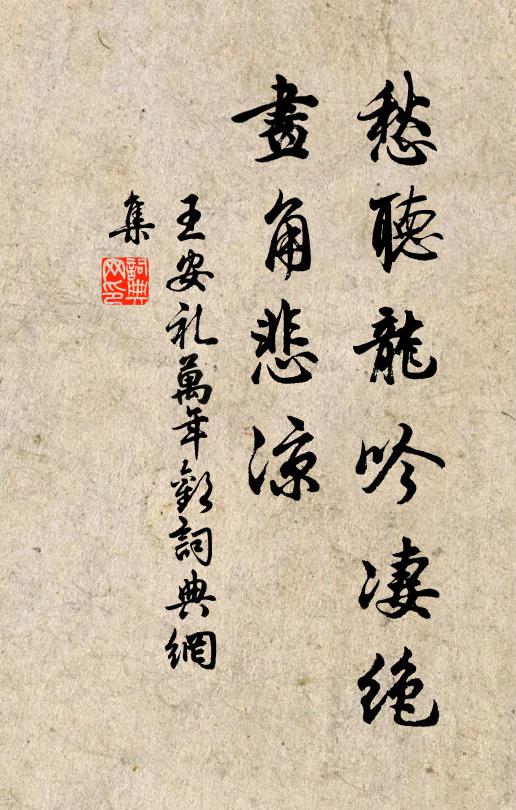 愁聽龍吟凄絕
畫角悲涼
王安礼萬年歡詞典網
集
詞典
网印